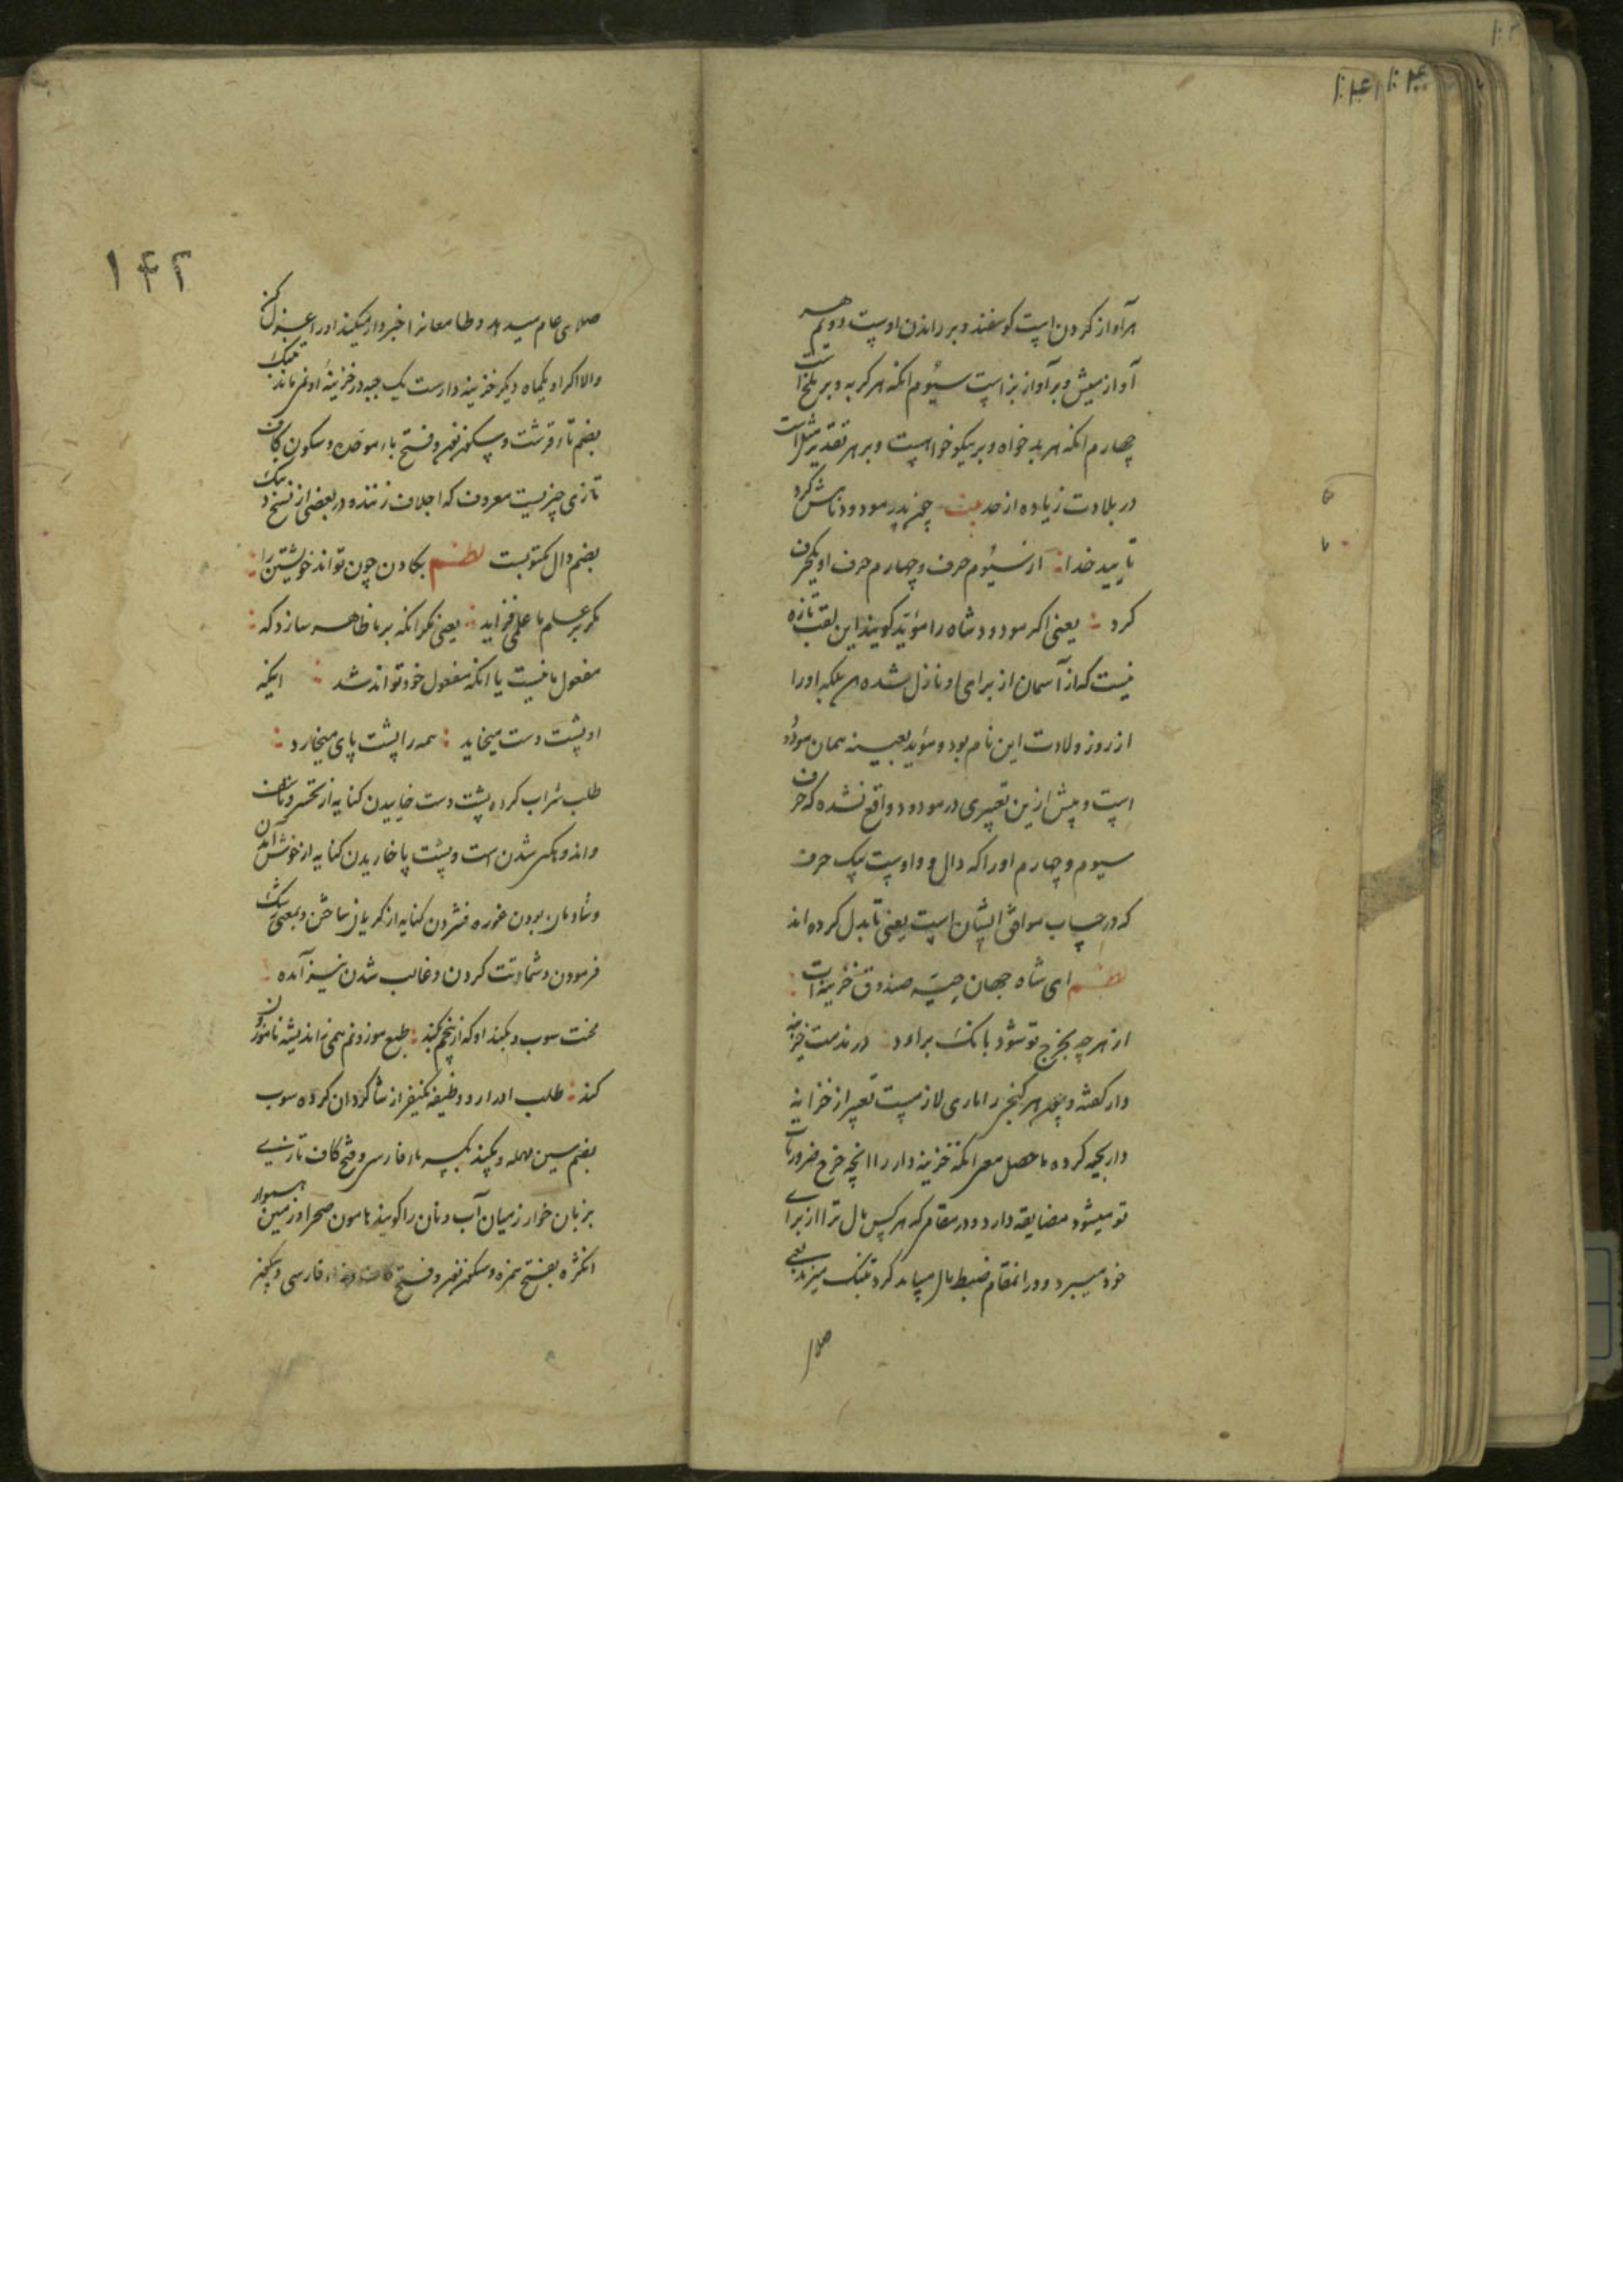 هر آواز کردن است کوسفند و بر راندن اوست دویم هر
آواز میش و بر آواز بز است سیوم انکه هر کربه و بر
چهارم انکه هر بد خواه و بر نیکو خواهست و بر هر تقدیر مثل است
در بلادت زیاده از حد بیت چون پدر مودود نامش کرد
تایید خدا از سیوم حرف و چهارم حرف او یکحرف
کرد یعنی اکر مودود شاه را مؤید کویند این لقب تازه
نیست که از آسمان از برای او نازل شده بلکه او را
از روز ولادت این نام بود و مؤید بعینه همان مودود
است و پیش ازین تغییری در مودود واقع نشده که حرف
سیوم و چهارم او را که دال و واوست یک حرف
که در حساب موافق ایشان است یعنی تا بدل کرده اند
نظم ای شاه جهان صندوق خزینه ات
از هر چه بخرج تو شود بانک برارد در مذمت خزینه
دار کفته و چون هر کنج را ماری لازمست تعبیر از خزانه
دار کرده ما حصل معنی انکه خزینه دار را انچه خرج ضروریات
تو میشود مضایقه دارد و در مقام که هر کس مال ترا از برای
خود میبرد و در انمقام ضبط مال میباید کرد تبنک میزند یعنی
صلا
۱۴۲
صلای عام میدهد و طامعانرا خبردار میکند او را عزل کن
والا اکر او یکماه دیکر خزینه دارست یک حبه در خزینۀ او نمی ماند تبنک
بضم تاء قرشت و سکون نون و فتح باء موحده و سکون کاف
تازی چیزیست معروف که اجلاف زنند و در بعضی از نسخ دنبک
بضم دال مکتوبست نظم بکادن چون تواند خویشتن را
مکر بر علم ما علمی فزاید یعنی مکر انکه بر ما ظاهر سازد که
مفعول ما نیست یا انکه مفعول خود تواند شد اینکه
او پشت دست میخاید همه را پشت پای میخارد
طلب شراب کرده پشت دست خاییدن کنایه از تحسر و تاسف
و اندوهکین شدن است و پشت پا خاریدن کنایه از خوش آمدن
و شادمان بودن غوره فشردن کنایه از کریان ساختن و بمعنی رشک
فرمودن و شماتت کردن و غالب شدن نیز آمده
کند طلب ادرار و وظیفه یکنفر از شاکردان کرده سوب
بضم سین مهمله و پکند بکسر باء فارسی و فتح کاف تازی
بزبان خوارزمیان آب و نان را کویند هامون صحرا و زمین هموار
انکژه بفتح همزه و سکون نون و فتح کاف فارسی و